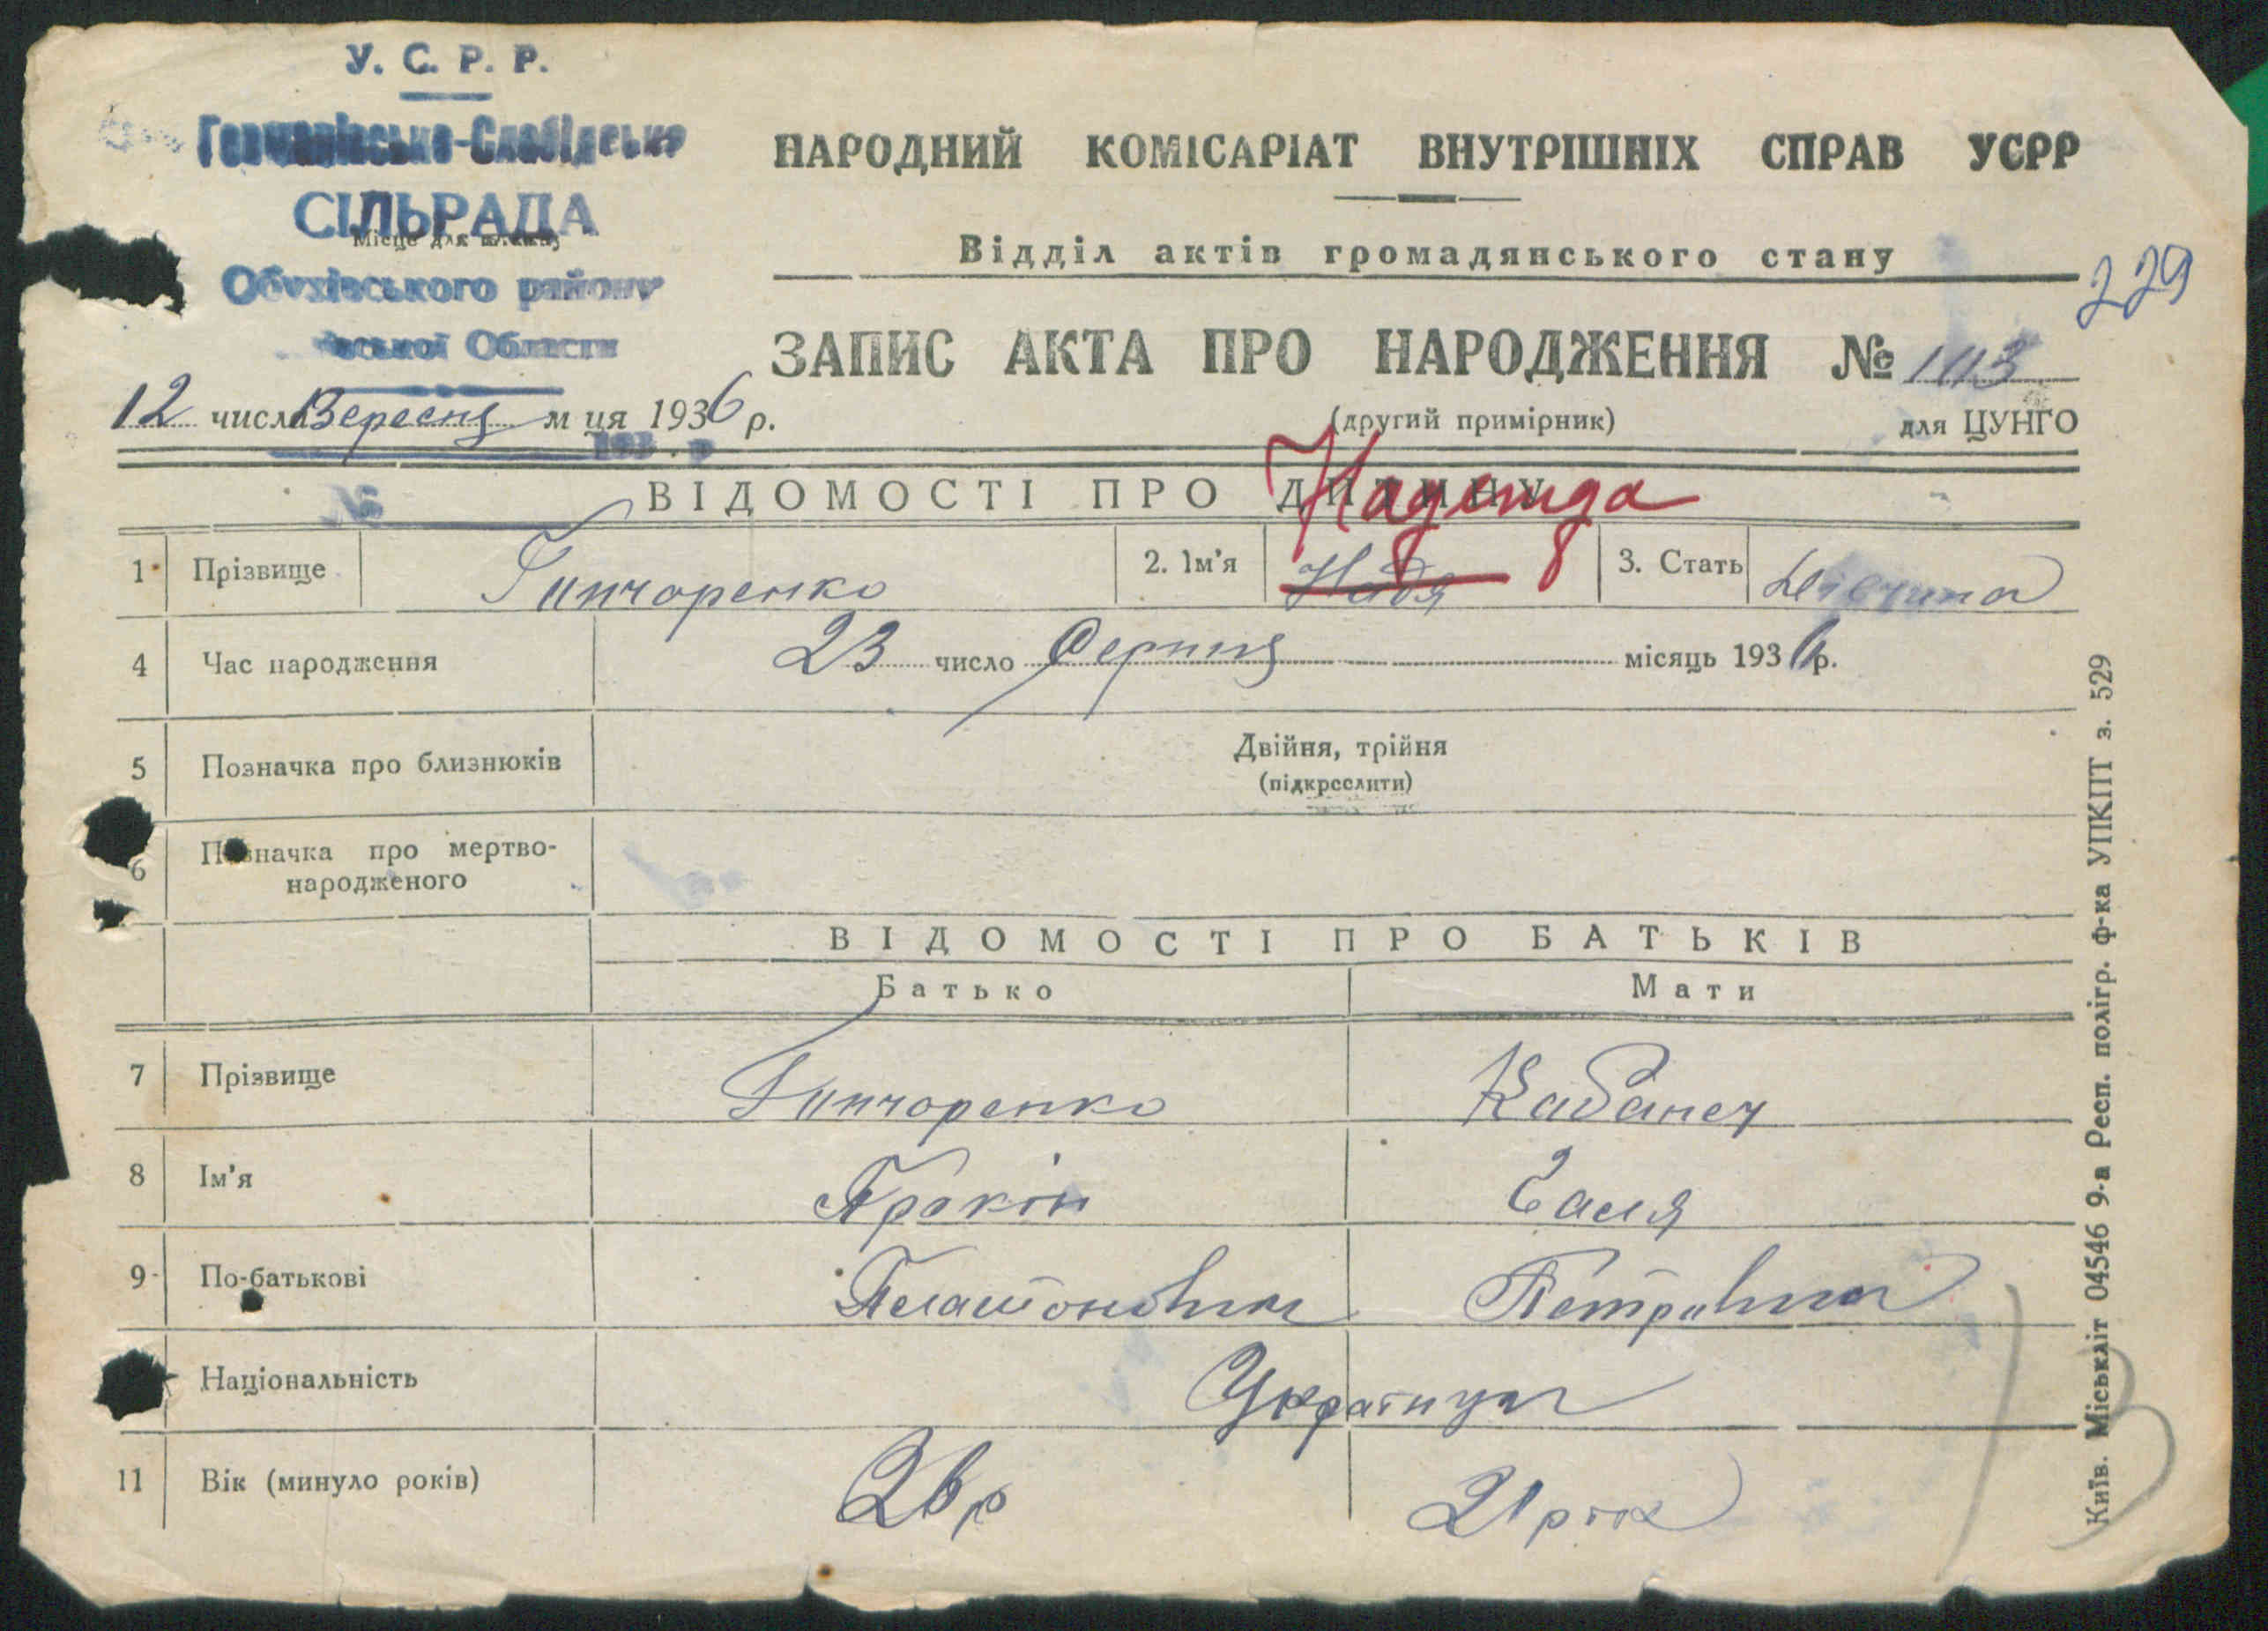 У. С. Р. Р.
Германівсько-Слобідська
СІЛЬРАДА
Місце для
Обухівського району
ської Области
НАРОДНИЙ КОМІСАРІАТ ВНУТРІШНІХ СПРАВ УСРР
Відділ актів громадянського стану
229
ЗАПИС АКТА ПРО НАРОДЖЕННЯ № 113
12 числа Вересня м ця 1936 р.
(другий примірник) для ЦУНГО
193 . р
№
ВІДОМОСТІ ПРО ДИТИНУ
Надежда
1 Прізвище Гинчаренко 2. Ім'я Надя 3. Стать Дівчина
4 Час народження 23 число Серпня місяць 1936 р.
5 Позначка про близнюків Двійня, трійня
(підкреслити)
6 Позначка про мертво-
народженого
ВІДОМОСТІ ПРО БАТЬКІВ
Батько Мати
7 Прізвище Гинчаренко Кабанец
8 Ім'я Прокіп Галя
9 По-батькові Платонович Петрівна
Національність Українци
11 Вік (минуло років) 26 р 21 рік
Київ. Міськліт 04546 9-а Респ. полігр. ф-ка УПКПТ з. 529